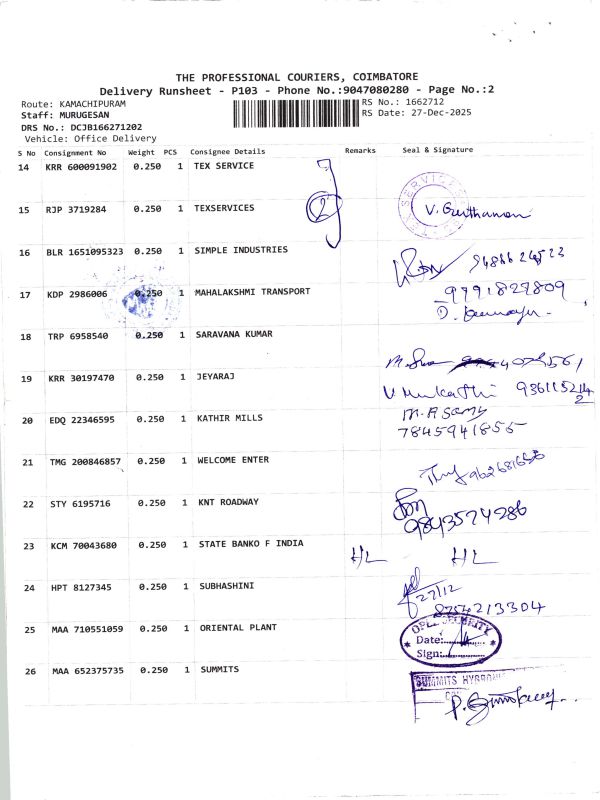 THE PROFESSIONAL COURIERS, COIMBATORE
Delivery Runsheet - P103 - Phone No.:9047080280 - Page No.:2
Route: KAMACHIPURAM
RS No.: 1662712
Staff: MURUGESAN
RS Date: 27-Dec-2025
DRS No.: DCJB166271202
Vehicle: Office Delivery
S No Consignment No Weight PCS Consignee Details Remarks Seal & Signature
14 KRR 600091902 0.250 1 TEX SERVICE
15 RJP 3719284 0.250 1 TEXSERVICES 2 V.
16 BLR 1651095323 0.250 1 SIMPLE INDUSTRIES
17 KDP 2986006 0.250 1 MAHALAKSHMI TRANSPORT 9791827809
18 TRP 6958540 0.250 1 SARAVANA KUMAR
19 KRR 30197470 0.250 1 JEYARAJ
20 EDQ 22346595 0.250 1 KATHIR MILLS M.A Samy
7845941855
21 TMG 200846857 0.250 1 WELCOME ENTER
22 STY 6195716 0.250 1 KNT ROADWAY
9843574286
23 KCM 70043680 0.250 1 STATE BANKO F INDIA H/L H/L
24 HPT 8127345 0.250 1 SUBHASHINI 27/12
8754213304
25 MAA 710551059 0.250 1 ORIENTAL PLANT Date:
Sign:
26 MAA 652375735 0.250 1 SUMMITS SUMMITS